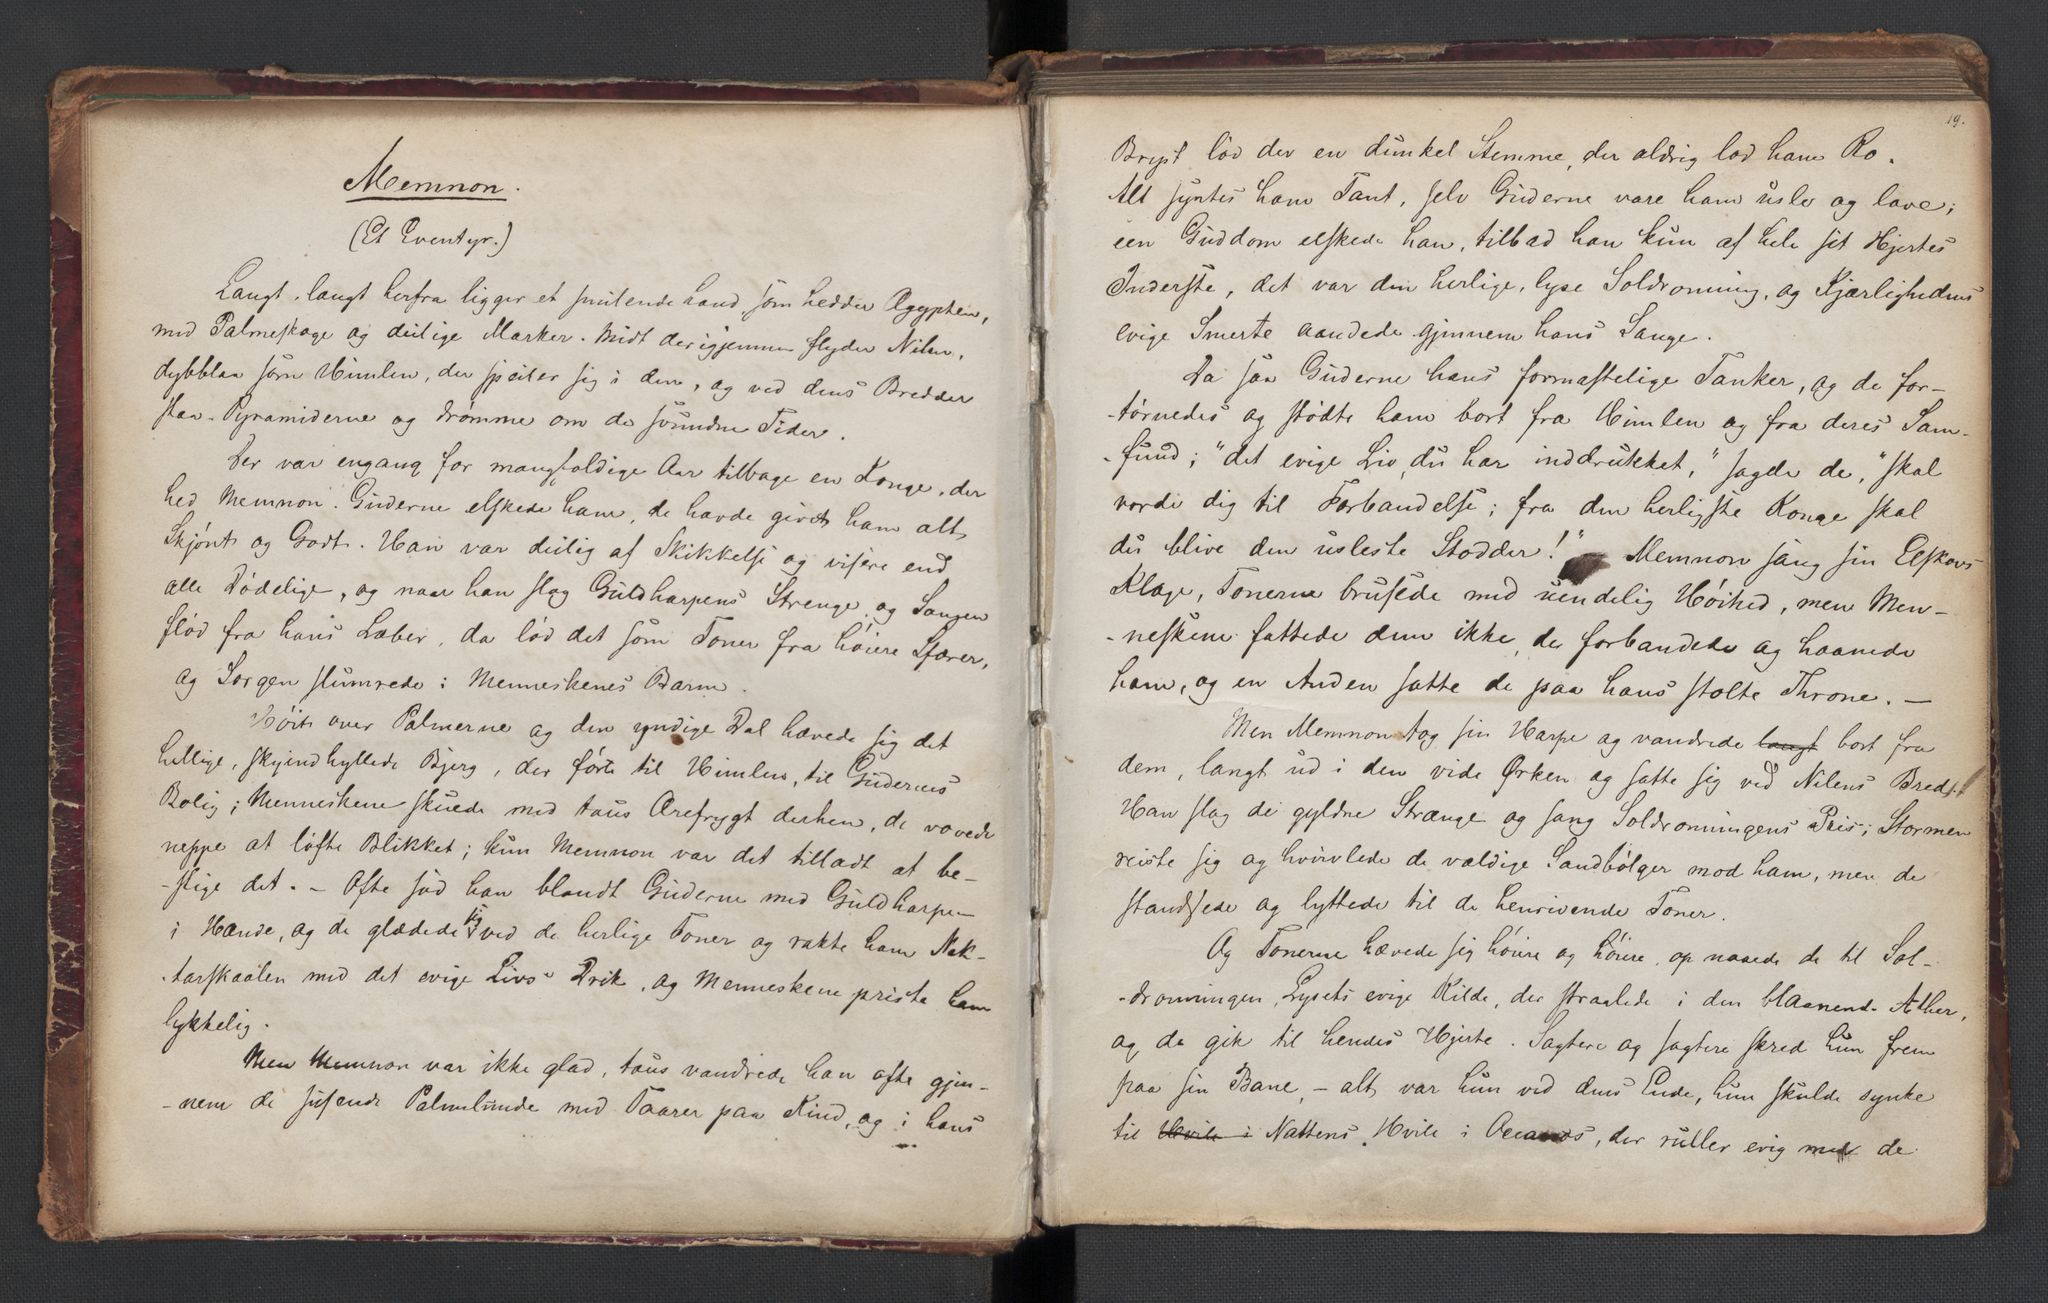 Memnon.
(Et Eventyr.)
Langt, langt herfra ligger et smilende Land som hedder Ægypten,
med Palmeskove og deilige Marker. Midt derigjennem flyder Nilen,
dybblaa som Himlen, der speiler sig i den, og ved dens Bredder
staa Pyramiderne og drømme om de svundne Tider.
Der var engang for mangfoldige Aar tilbage en Konge, der
hed Memnon. Guderne elskede ham, de havde givet ham alt
Skjønt og Godt. Han var deilig af Skikkelse og visere end
alle Dødelige, og naar han slog Guldharpens Strenge og Sangen
flød fra hans Læber, da lød det som Toner fra høiere Sfærer,
og Sorgen slumrede i Menneskenes Barm.
Høit over Palmerne og den yndige Dal hævede sig det
hellige, skyindhyllede Bjerg, der førte til Himlen, til Gudernes
Bolig; Menneskene skuede med taus Ærefrygt derhen, de vovede
neppe at løfte Blikket; kun Memnon var det tilladt at be-
-stige det. – Ofte sad han blandt Guderne med Guldharpen
i Hænde, og de glædede sig ved de herlige Toner og rakte ham Nek-
-tarskaalen med det evige Livs Drik, og Menneskene priste ham
lykkelig.
Men Memnon var ikke glad, taus vandrede han ofte gjen-
-nem de susende Palmelunde med Taarer paa Kind, og i hans
19.
Bryst lød der en dunkel Stemme, der aldrig lod ham Ro.
Alt syntes ham Tant, selv Guderne vare ham usle og lave;
een Guddom elskede han, tilbad han kun af hele sit Hjertes
Inderste, det var den herlige, lyse Soldronning, og Kjærlighedens
evige Smerte aandede gjennem hans Sange.
Da saa Guderne hans formastelige Tanker, og de for-
-tørnedes og stødte ham bort fra Himlen og fra deres Sam-
-fund; "det evige Liv du har inddrukket," sagde de, "skal
vorde dig til Forbandelse; fra den herligste Konge skal
du blive den usleste Stodder!" Memnon sang sin Elskovs
Klage, Tonerne brusede med uendelig Høihed, men Men-
-neskene fattede dem ikke, de forbandede og haanede
ham, og en Anden satte de paa hans stolte Throne. –
Men Memnon tog sin Harpe og vandrede langt bort fra
dem, langt ud i den vide Ørken og satte sig ved Nilens Bred.
Han slog de gyldne Strænge og sang Soldronningens Pris; Stormen
reiste sig og hvirvlede de vældige Sandbølger mod ham, men de
standsede og lyttede til de henrivende Toner.
Og Tonerne hævede sig høiere og høiere, op naaede de til Sol-
-dronningen, Lysets evige Kilde, der straalede i den blaanende Æther,
og de gik til hendes Hjerte. Sagtere og sagtere skred hun frem
paa sin Bane, – alt var hun ved dens Ende, hun skulde synke
til Hvile i Nattens Hvile i Oceanos, der ruller evig med de